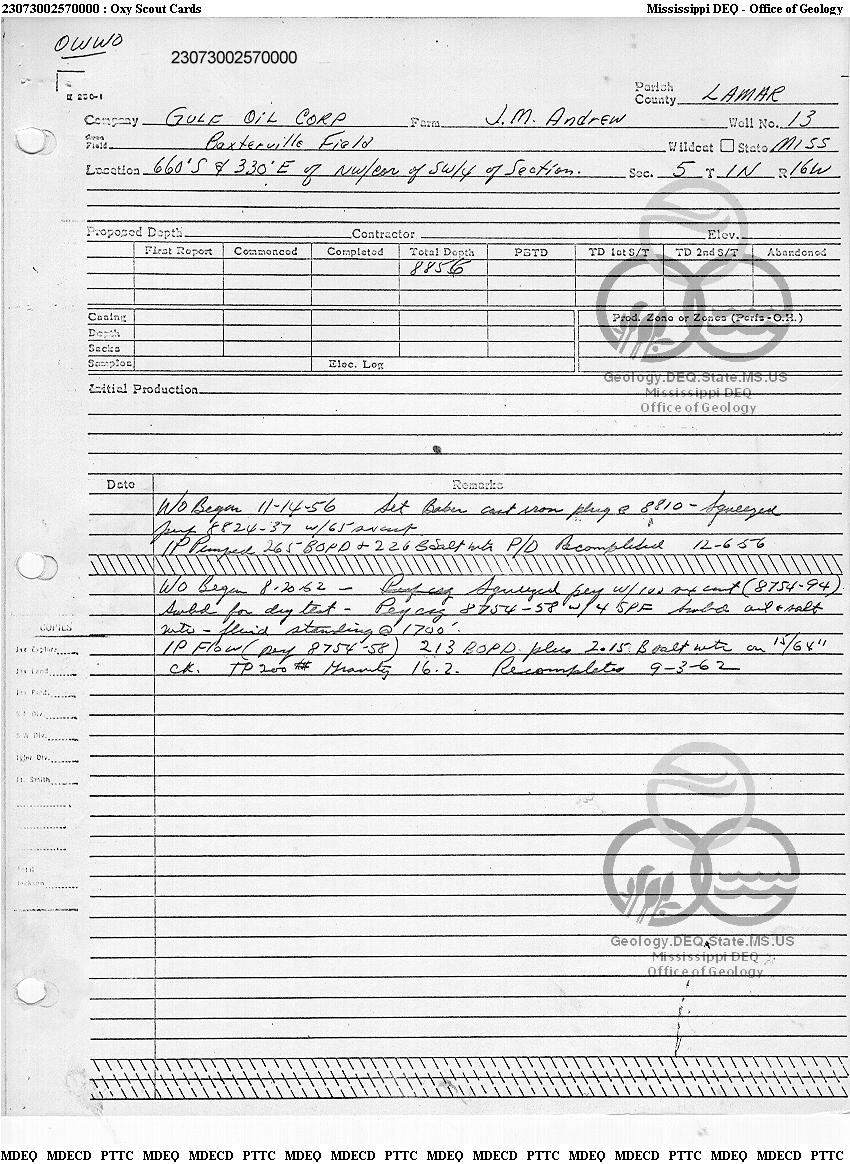 23073002570000 : Oxy Scout Cards Mississippi DEQ - Office of Geology
OWWO
23073002570000
Parish
County LAMAR
Company GULF OIL CORP Farm J.M. Andrew Well No. 13
Area
Field Baxterville Field Wildcat State MISS
Location 660'S & 330'E of NW/cor of SW/4 of Section. Sec. 5 T 1N R 16W
Proposed Depth Contractor Elev.
First Report Commenced Completed Total Depth PBTD TD 1st S/T TD 2nd S/T Abandoned
8856
Casing Prod. Zone or Zones (Perfs-O.H.)
Depth
Sacks
Samples Elec. Log
Geology.DEQ.State.MS.US
Initial Production
Mississippi DEQ
Office of Geology
Date Remarks
WO Began 11-14-56 Set Baker cast iron plug @ 8810 - Squeezed
perf 8824-37 w/65 sx cmt
IP Pumped 265 BOPD + 226 B salt wtr P/D Recompleted 12-6-56
WO Began 8-20-62 - Squeezed perf w/100 sx cmt (8754-94)
Swbd for dry test - Perf csg 8754-58 w/4 SPF Swbd oil & salt
wtr - fluid standing @ 1700'.
COPIES
IP Flow (perf 8754-58) 213 BOPD plus 2.015 B salt wtr on 15/64"
ck. TP 200# Gravity 16.2. Recompleted 9-3-62
Jax Explor.
Jax Land
Jax Prod.
S.W. Div.
Tyler Div.
Ft. Smith
Jackson
Geology.DEQ.State.MS.US
Mississippi DEQ
Office of Geology
MDEQ MDECD PTTC MDEQ MDECD PTTC MDEQ MDECD PTTC MDEQ MDECD PTTC MDEQ MDECD PTTC MDEQ MDECD PTTC